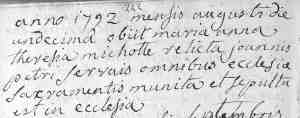 anno 1792 mensis augusti die
undecima obiit maria anna
theresia micholte relicta joannis
petri servais omnibus ecclesiæ
sacramentis munita et sepulta
est in ecclesia
septembris